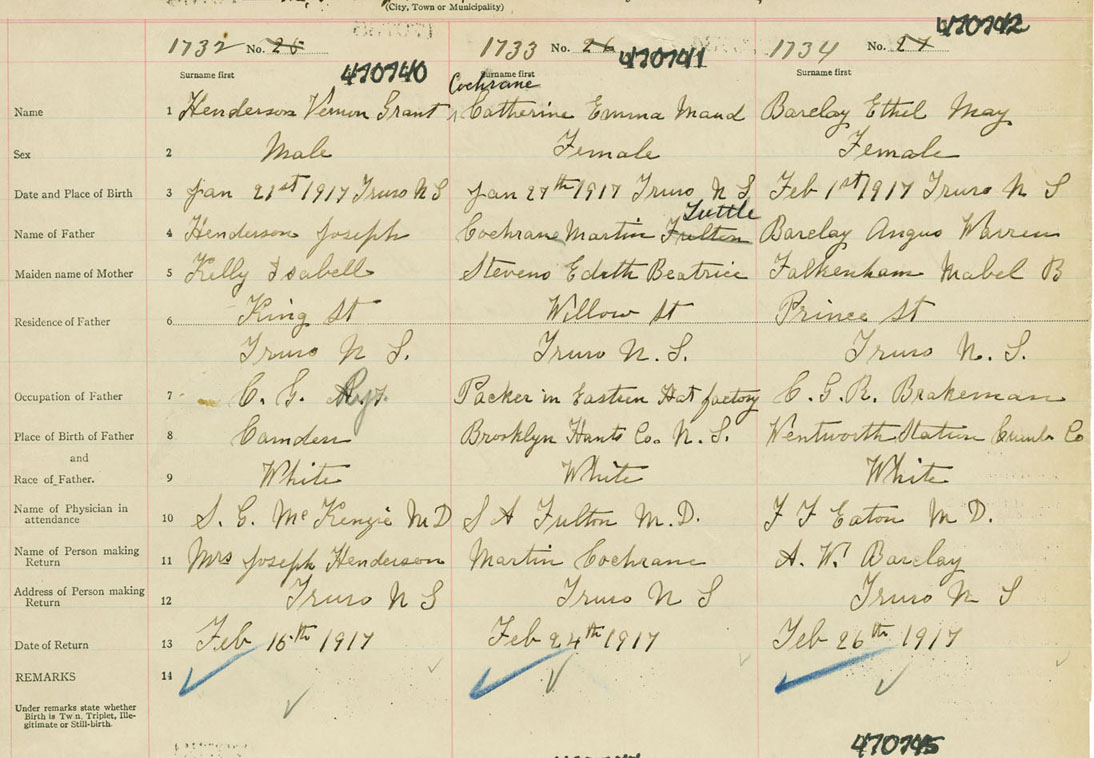 (City, Town or Municipality)
470742
1732 No. 25 1733 No. 26 1734 No. 27
470740 470741
Surname first Surname first Surname first
Cochrane
Name 1 Henderson Vernon Grant Catherine Emma Maud Barclay Ethel May
Sex 2 Male Female Female
Date and Place of Birth 3 Jan 21st 1917 Truro N S Jan 27th 1917 Truro N S Feb 1st 1917 Truro N S
Tuttle
Name of Father 4 Henderson Joseph Cochrane Martin Fulton Barclay Angus Warren
Maiden name of Mother 5 Kelly Isabell Stevens Edith Beatrice Falkenham Mabel B
Residence of Father 6 King St Willow St Prince St
Truro N S. Truro N. S. Truro N. S.
Occupation of Father 7 C. G. Packer in Eastern Hat factory C. G. R. Brakeman
Place of Birth of Father 8 Camden Brooklyn Hants Co. N. S. Wentworth Station Cumb Co
and
Race of Father. 9 White White White
Name of Physician in
attendance 10 S. G. McKenzie M D S A Fulton M. D. F F Eaton M D.
Name of Person making
Return 11 Mrs Joseph Henderson Martin Cochrane A. W. Barclay
Address of Person making
Return 12 Truro N S Truro N S Truro N S
Date of Return 13 Feb 15th 1917 Feb 24th 1917 Feb 26th 1917
REMARKS 14
Under remarks state whether
Birth is Twin, Triplet, Ille-
gitimate or Still-birth.
470745